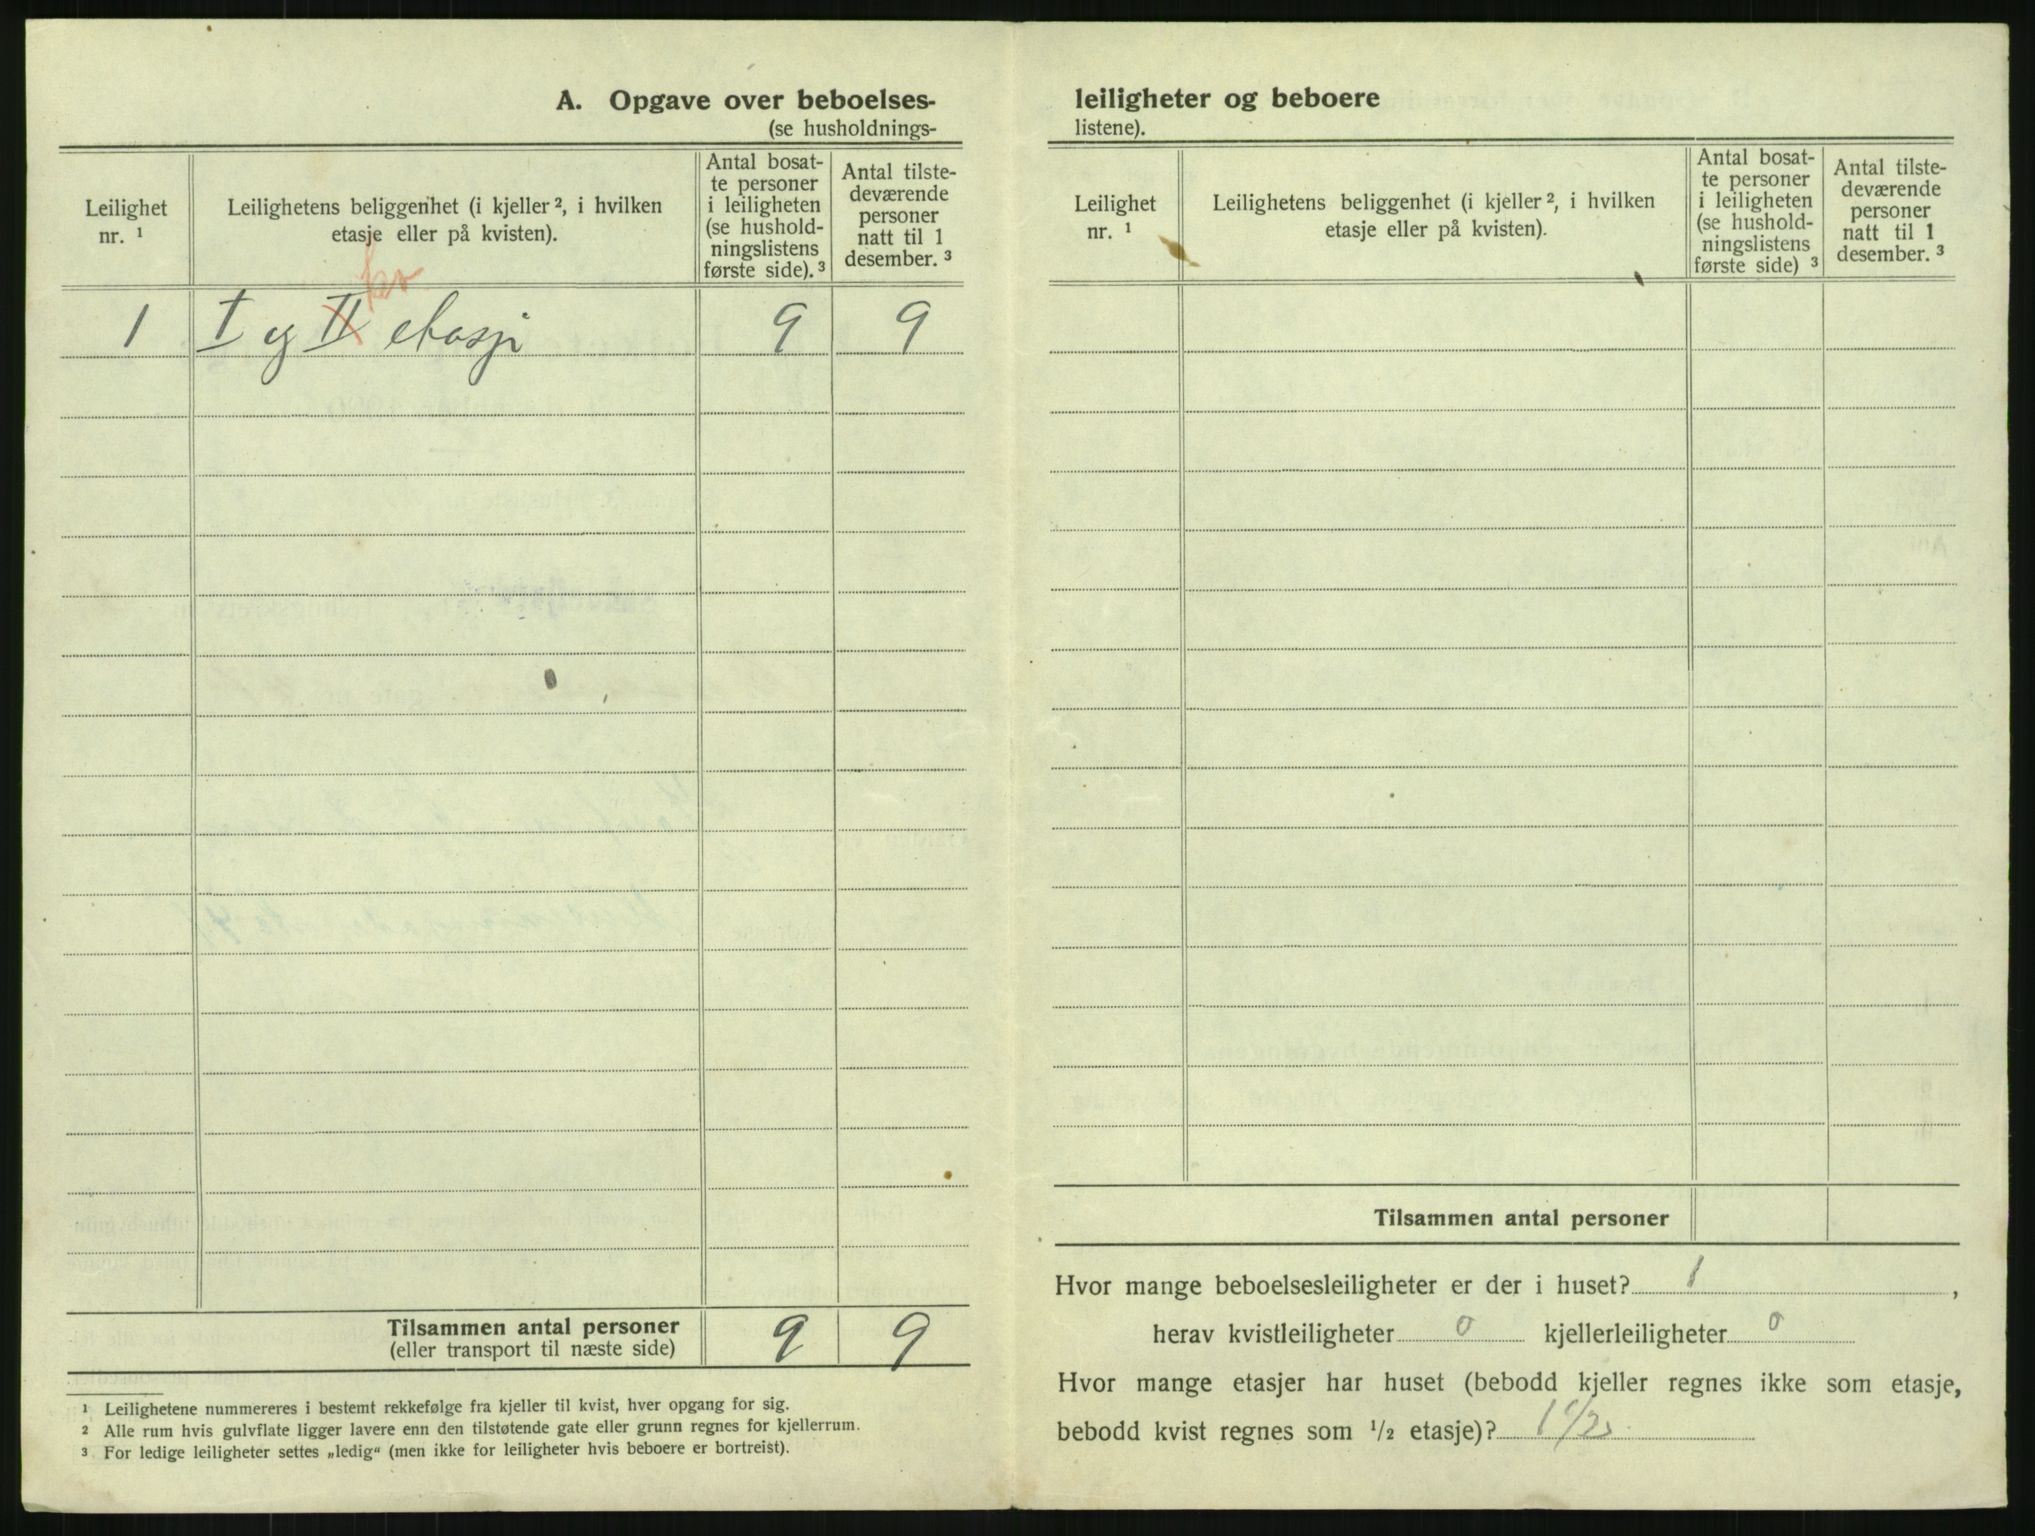 A. Opgave over beboelses-
(se husholdnings-
Leilighet
nr. ¹
Leilighetens beliggenhet (i kjeller ², i hvilken
etasje eller på kvisten).
Antal bosat-
te personer
i leiligheten
(se hushold-
ningslistens
første side). ³
Antal tilste-
deværende
personer
natt til 1
desember. ³
kv
1 I og II etasje 9 9
Tilsammen antal personer 9 9
(eller transport til næste side)
¹ Leilighetene nummereres i bestemt rekkefølge fra kjeller til kvist, hver opgang for sig.
² Alle rum hvis gulvflate ligger lavere enn den tilstøtende gate eller grunn regnes for kjellerrum.
³ For ledige leiligheter settes „ledig“ (men ikke for leiligheter hvis beboere er bortreist).
leiligheter og beboere
listene).
Leilighet
nr. ¹
Leilighetens beliggenhet (i kjeller ², i hvilken
etasje eller på kvisten).
Antal bosat-
te personer
i leiligheten
(se hushold-
ningslistens
første side) ³
Antal tilste-
deværende
personer
natt til 1
desember. ³
Tilsammen antal personer
Hvor mange beboelsesleiligheter er der i huset? 1,
herav kvistleiligheter 0 kjellerleiligheter 0
Hvor mange etasjer har huset (bebodd kjeller regnes ikke som etasje,
bebodd kvist regnes som ½ etasje)? 1 1/2